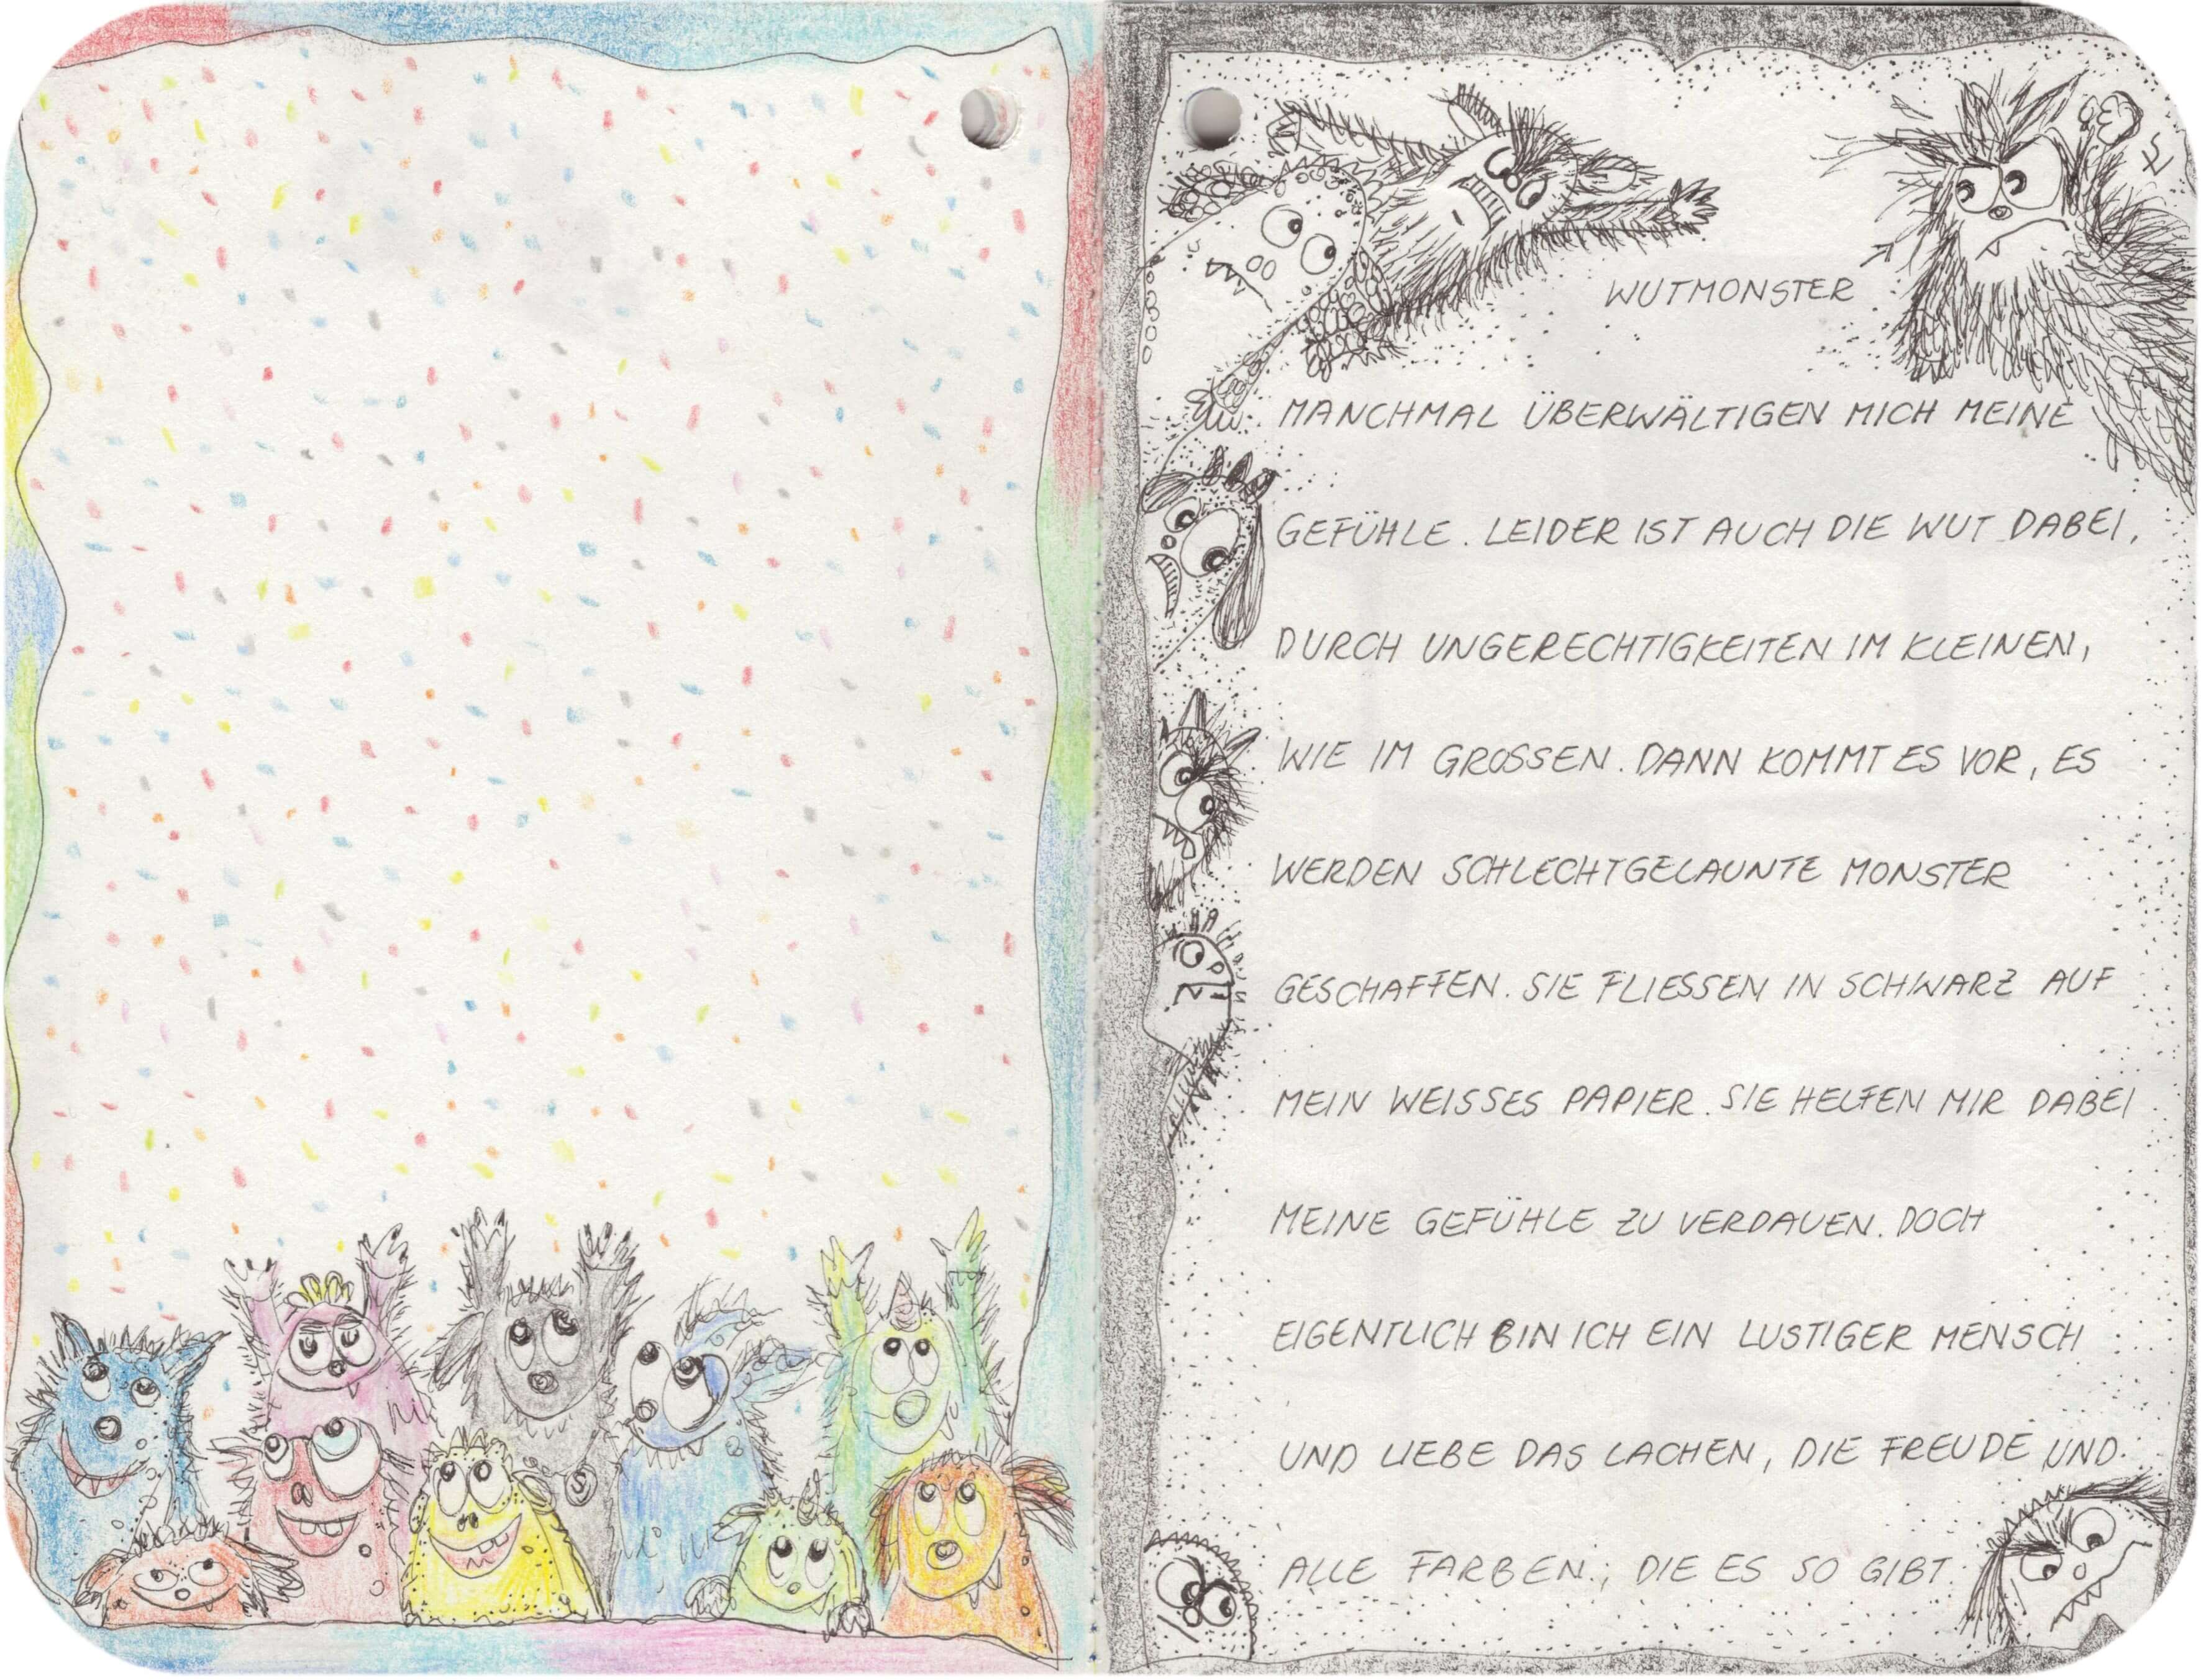 WUTMONSTER
MANCHMAL ÜBERWÄLTIGEN MICH MEINE
GEFÜHLE. LEIDER IST AUCH DIE WUT DABEI,
DURCH UNGERECHTIGKEITEN IM KLEINEN,
WIE IM GROSSEN. DANN KOMMT ES VOR, ES
WERDEN SCHLECHTGELAUNTE MONSTER
GESCHAFFEN. SIE FLIESSEN IN SCHWARZ AUF
MEIN WEISSES PAPIER. SIE HELFEN MIR DABEI
MEINE GEFÜHLE ZU VERDAUEN. DOCH
EIGENTLICH BIN ICH EIN LUSTIGER MENSCH
UND LIEBE DAS LACHEN, DIE FREUDE UND
ALLE FARBEN, DIE ES SO GIBT.